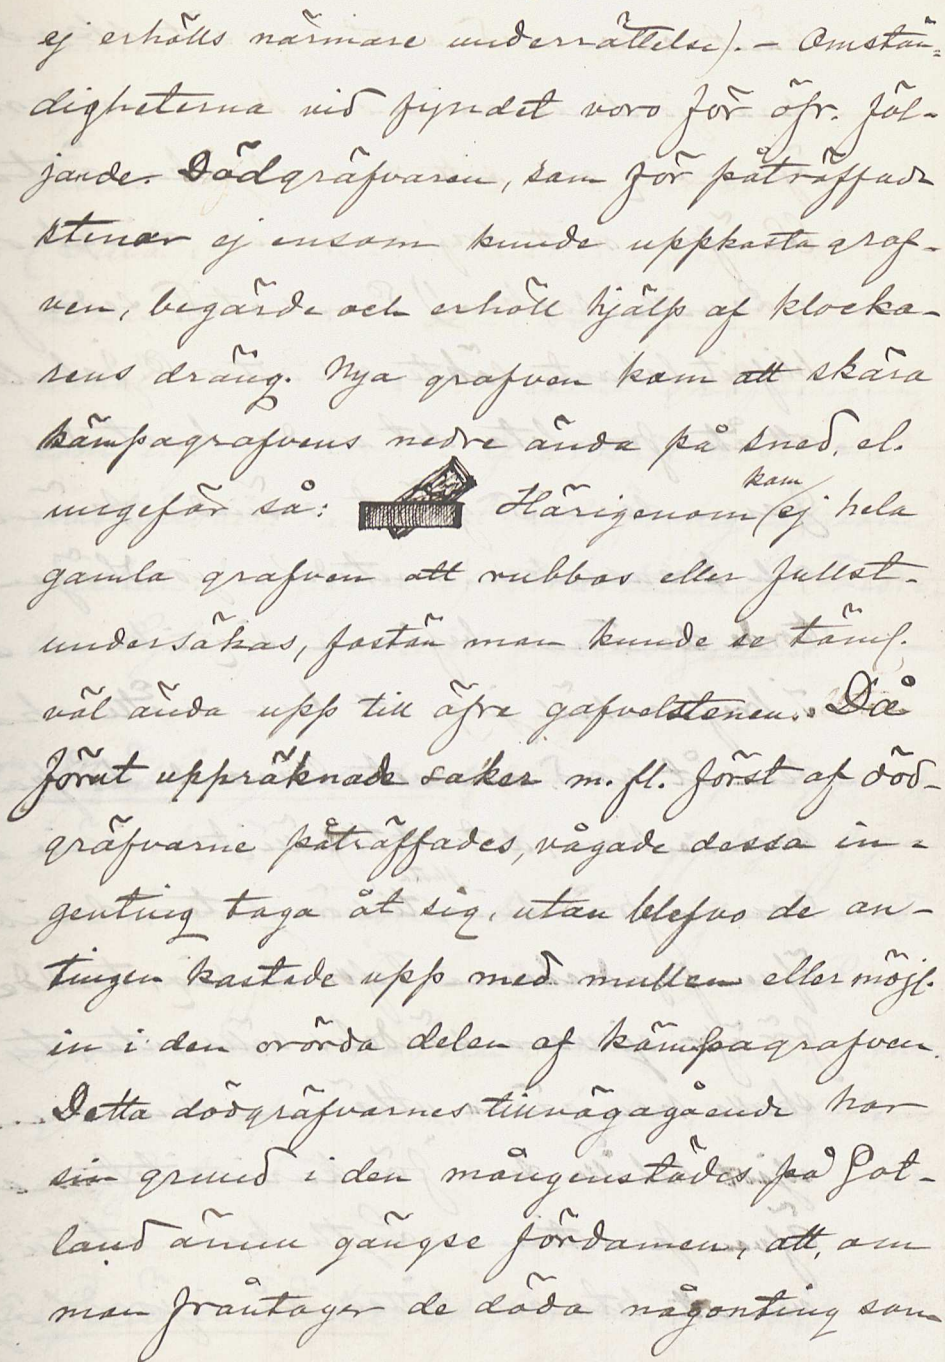 ej erhölls närmare underrättelse). – Omstän=
digheterna vid fyndet voro för öfr. föl-
jande. Dödgräfvaren, som för påträffade
stenar ej ensam kunde uppkasta graf-
ven, begärde och erhöll hjälp af klocka-
rens dräng. Nya grafven kom att skära
kämpagrafvens nedre ända på sned, el.
ungefär så: Härigenom kom ej hela
gamla grafven att rubbas eller fullst.
undersökas, fastän man kunde se täml.
väl ända upp till öfre gafvelstenen. Då
förut uppräknade saker m. fl. först af död-
gräfvarne påträffades, vågade dessa in-
genting taga åt sig, utan blefvo de an-
tingen kastade upp med mullen eller möjl.
in i den orörda delen af kämpagrafven.
Detta dödgräfvarnes tillvägagående har
sin grund i den mångenstädes på Got-
land ännu gängse fördomen, att, om
man fråntager de döda någonting som